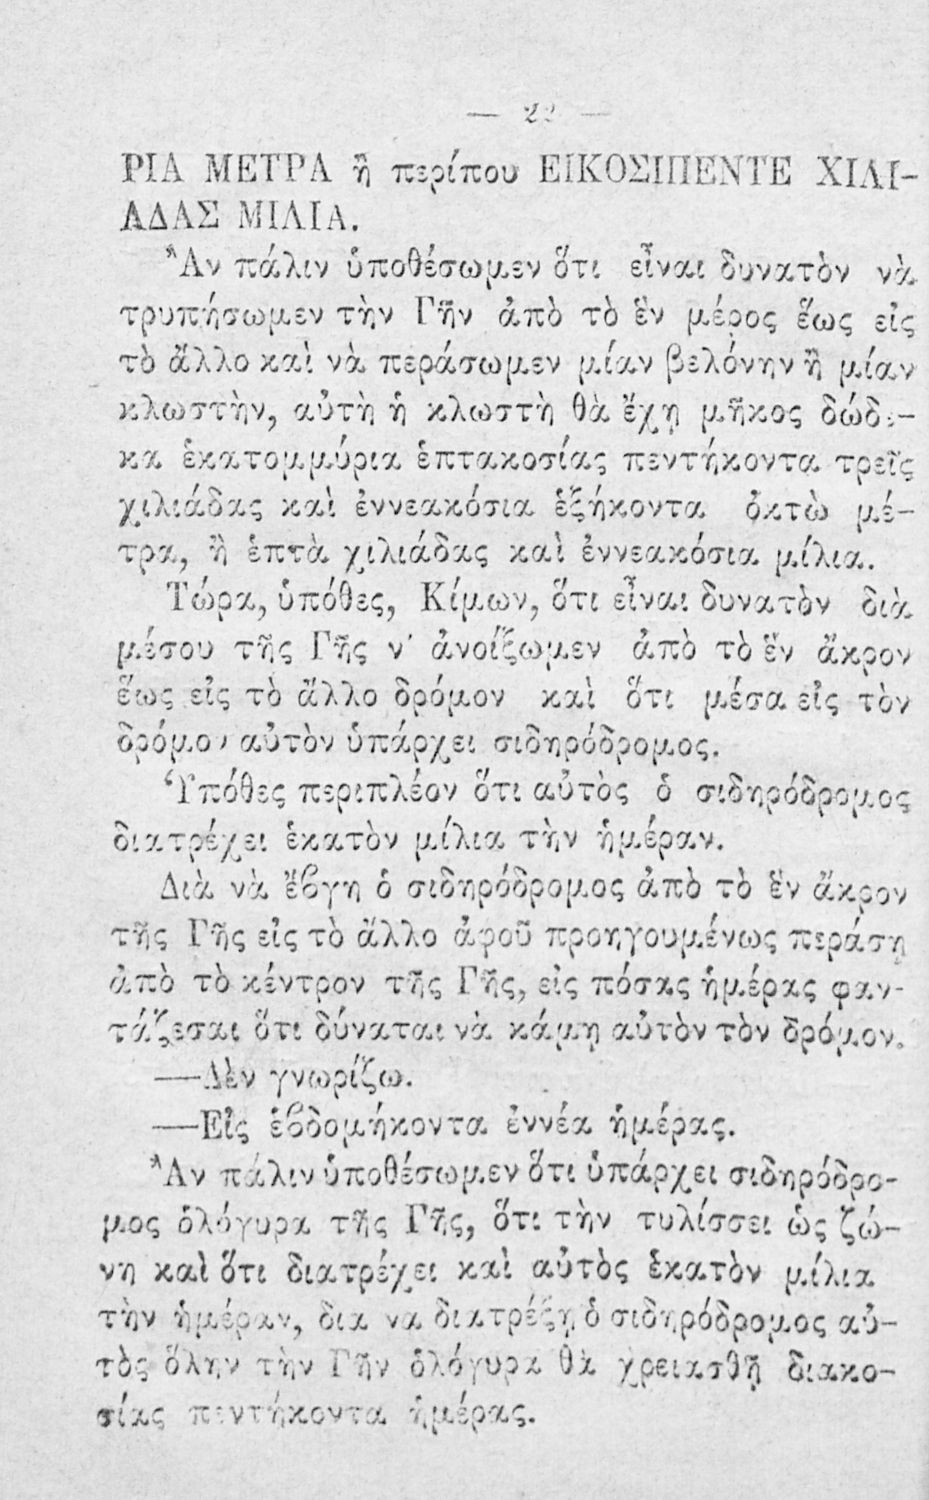 — 22 —
ΡΙΑ ΜΕΤΡΑ ἢ περίπου ΕΙΚΟΣΙΠΕΝΤΕ ΧΙΛΙ-
ΑΔΑΣ ΜΙΛΙΑ.
Ἂν πάλιν ὑποθέσωμεν ὅτι εἶναι δυνατὸν νὰ
τρυπήσωμεν τὴν Γῆν ἀπὸ τὸ ἓν μέρος ἕως εἰς
τὸ ἄλλο καὶ νὰ περάσωμεν μίαν βελόνην ἢ μίαν
κλωστὴν, αὐτὴ ἡ κλωστὴ θὰ ἔχῃ μῆκος δώδε-
κα ἑκατομμύρια ἑπτακοσίας πεντήκοντα τρεῖς
χιλιάδας καὶ ἐννεακόσια ἑξήκοντα ὀκτὼ μέ-
τρα, ἢ ἑπτὰ χιλιάδας καὶ ἐννεακόσια μίλια.
Τώρα, ὑπόθες, Κίμων, ὅτι εἶναι δυνατὸν διὰ
μέσου τῆς Γῆς ν' ἀνοίξωμεν ἀπὸ τὸ ἓν ἄκρον
ἕως εἰς τὸ ἄλλο δρόμον καὶ ὅτι μέσα εἰς τὸν
δρόμον αὐτὸν ὑπάρχει σιδηρόδρομος.
Ὑπόθες περιπλέον ὅτι αὐτὸς ὁ σιδηρόδρομος
διατρέχει ἑκατὸν μίλια τὴν ἡμέραν.
Διὰ νὰ ἔβγῃ ὁ σιδηρόδρομος ἀπὸ τὸ ἓν ἄκρον
τῆς Γῆς εἰς τὸ ἄλλο ἀφοῦ προηγουμένως περάσῃ
ἀπὸ τὸ κέντρον τῆς Γῆς, εἰς πόσας ἡμέρας φαν-
τάζεσαι ὅτι δύναται νὰ κάμῃ αὐτὸν τὸν δρόμον.
—Δὲν γνωρίζω.
—Εἰς ἑβδομήκοντα ἐννέα ἡμέρας.
Ἂν πάλιν ὑποθέσωμεν ὅτι ὑπάρχει σιδηρόδρο-
μος ὁλόγυρα τῆς Γῆς, ὅτι τὴν τυλίσσει ὡς ζώ-
νη καὶ ὅτι διατρέχει καὶ αὐτὸς ἑκατὸν μίλια
τὴν ἡμέραν, δια να διατρέξῃ ὁ σιδηρόδρομος αὐ-
τὸς ὅλην τὴν Γῆν ὁλόγυρα θὰ χρειασθῇ διακο-
σίας πεντήκοντα ἡμέρας.